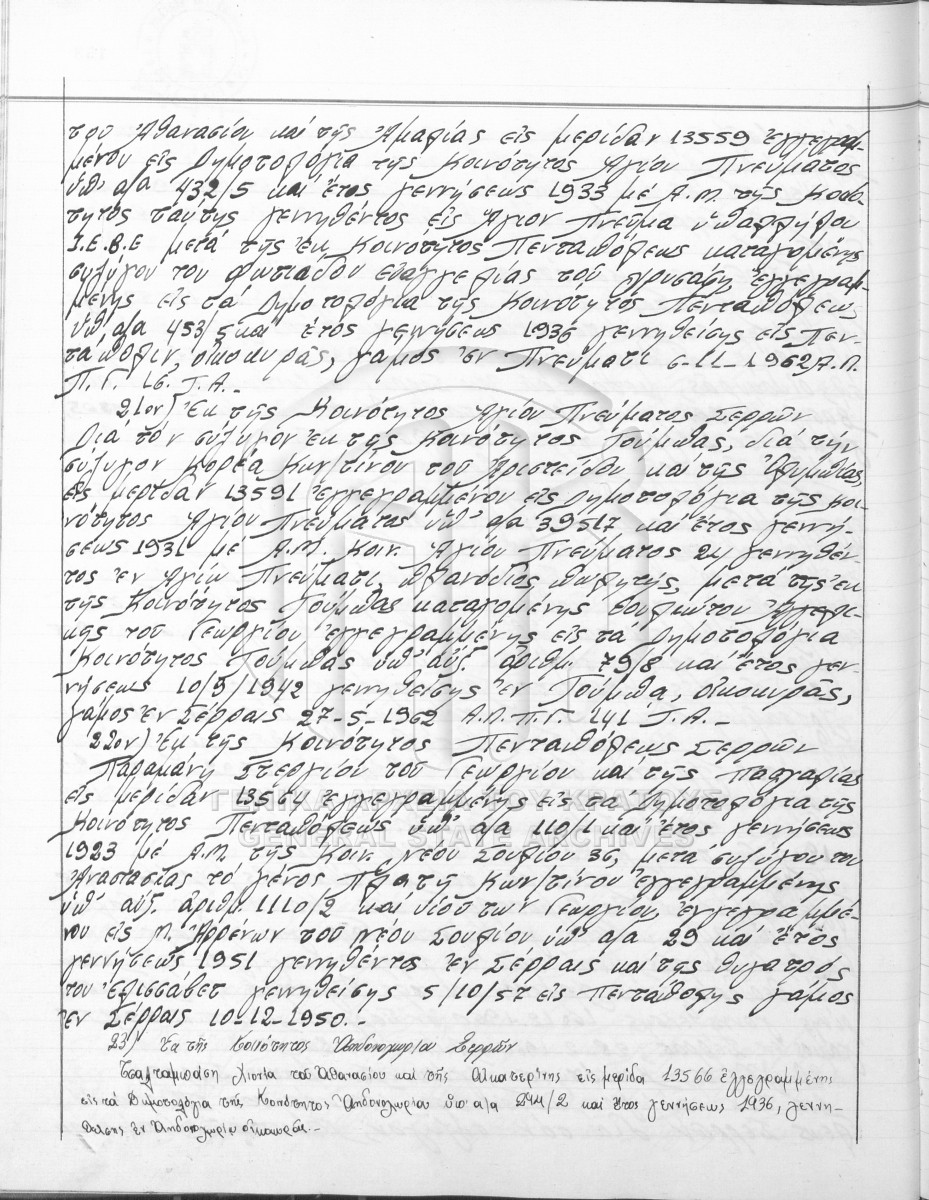 του Αθανασίου και της Αμαλίας εις μερίδαν 13559 εγγεγραμ-
μένου εις Δημοτολόγια της Κοινότητος Αγίου Πνεύματος
υπ' α/α 432/5 και έτος γεννήσεως 1933 με Α.Μ. της Κοινό-
τητος ταύτης γεννηθέντος εις Άγιον Πνεύμα υπαλλήλου
Σ.Ε.Β.Ε μετά της εκ Κοινότητος Πενταπόλεως καταγομένης
συζύγου του Φωτιάδου Ευαγγελίας του Χρυσάφη εγγεγραμ-
μένης εις τα Δημοτολόγια της Κοινότητος Πενταπόλεως
υπ' α/α 453/5 και έτος γεννήσεως 1936 γεννηθείσης εις Πεν-
τάπολιν, οικοκυράς, γάμος εν Πνεύματι 6-11-1962 Α.Π.
Π.Γ. 16. Τ.Α.-
21ον) Εκ της Κοινότητος Αγίου Πνεύματος Σερρών
Διά τον σύζυγον εκ της Κοινότητος Τούμπας, διά την
σύζυγον Κορέα Κων/τίνου του Αριστείδου και της Ολυμπίας
εις μερίδαν 13591 εγγεγραμμένου εις Δημοτολόγια της Κοι-
νότητος Αγίου Πνεύματος υπ' α/α 395/7 και έτος γεννή-
σεως 1931 με Α.Μ. Κοιν. Αγίου Πνεύματος 24 γεννηθέν-
τος εν Αγίω Πνεύματι, πλανόδιος πωλητής, μετά της εκ
της Κοινότητος Τούμπας καταγομένης Αγγελι-
κής του Γεωργίου εγγεγραμμένης εις τα Δημοτολόγια
Κοινότητος Τούμπας υπ' αύξ. αριθμ. 79/8 και έτος γεν-
νήσεως 10/5/1942 γεννηθείσης εν Τούμπα, οικοκυράς,
γάμος εν Σέρραις 27-5-1962 Α.Π.Π.Γ. 141 Τ.Α.-
22ον) Εκ της Κοινότητος Πενταπόλεως Σερρών
Παραμάνη Στεργίου του Γεωργίου και της Πασχαλίας
εις μερίδαν εγγεγραμμένης εις τα Δημοτολόγια της
Κοινότητος Πενταπόλεως υπ' α/α 110/1 και έτος γεννήσεως
1923 με Α.Μ. της Κοιν. Νέου Σουλίου 36, μετά συζύγου του
Αναστασίας το γένος Κων/τίνου εγγεγραμμένης
υπ' αύξ. αριθμ. 1110/2 και υιού των Γεωργίου εγγεγραμμέ-
νου εις Μ. Αρρένων του Νέου Σουλίου υπ' α/α 29 και έτος
γεννήσεως 1951 γεννηθέντος εν Σέρραις και της θυγατρός
του Ελισσάβετ γεννηθείσης 5/10/57 εις Πεντάπολης γάμος
εν Σέρραις 10-12-1950.-
23) Εκ της Κοινότητος Αηδονοχωρίου Σερρών
Τσαλταμπάση Χιονία του Αθανασίου και της Αικατερίνης εις μερίδα 13566 εγγεγραμμένης
εις τα Δημοτολόγια της Κοινότητος Αηδονοχωρίου υπ' α/α 244/2 και έτος γεννήσεως 1936, γεννη-
θείσης εν Αηδονοχωρίω οικοκυράς.-
ΓΕΝΙΚΑ ΑΡΧΕΙΑ ΤΟΥ ΚΡΑΤΟΥΣ
GENERAL STATE ARCHIVES